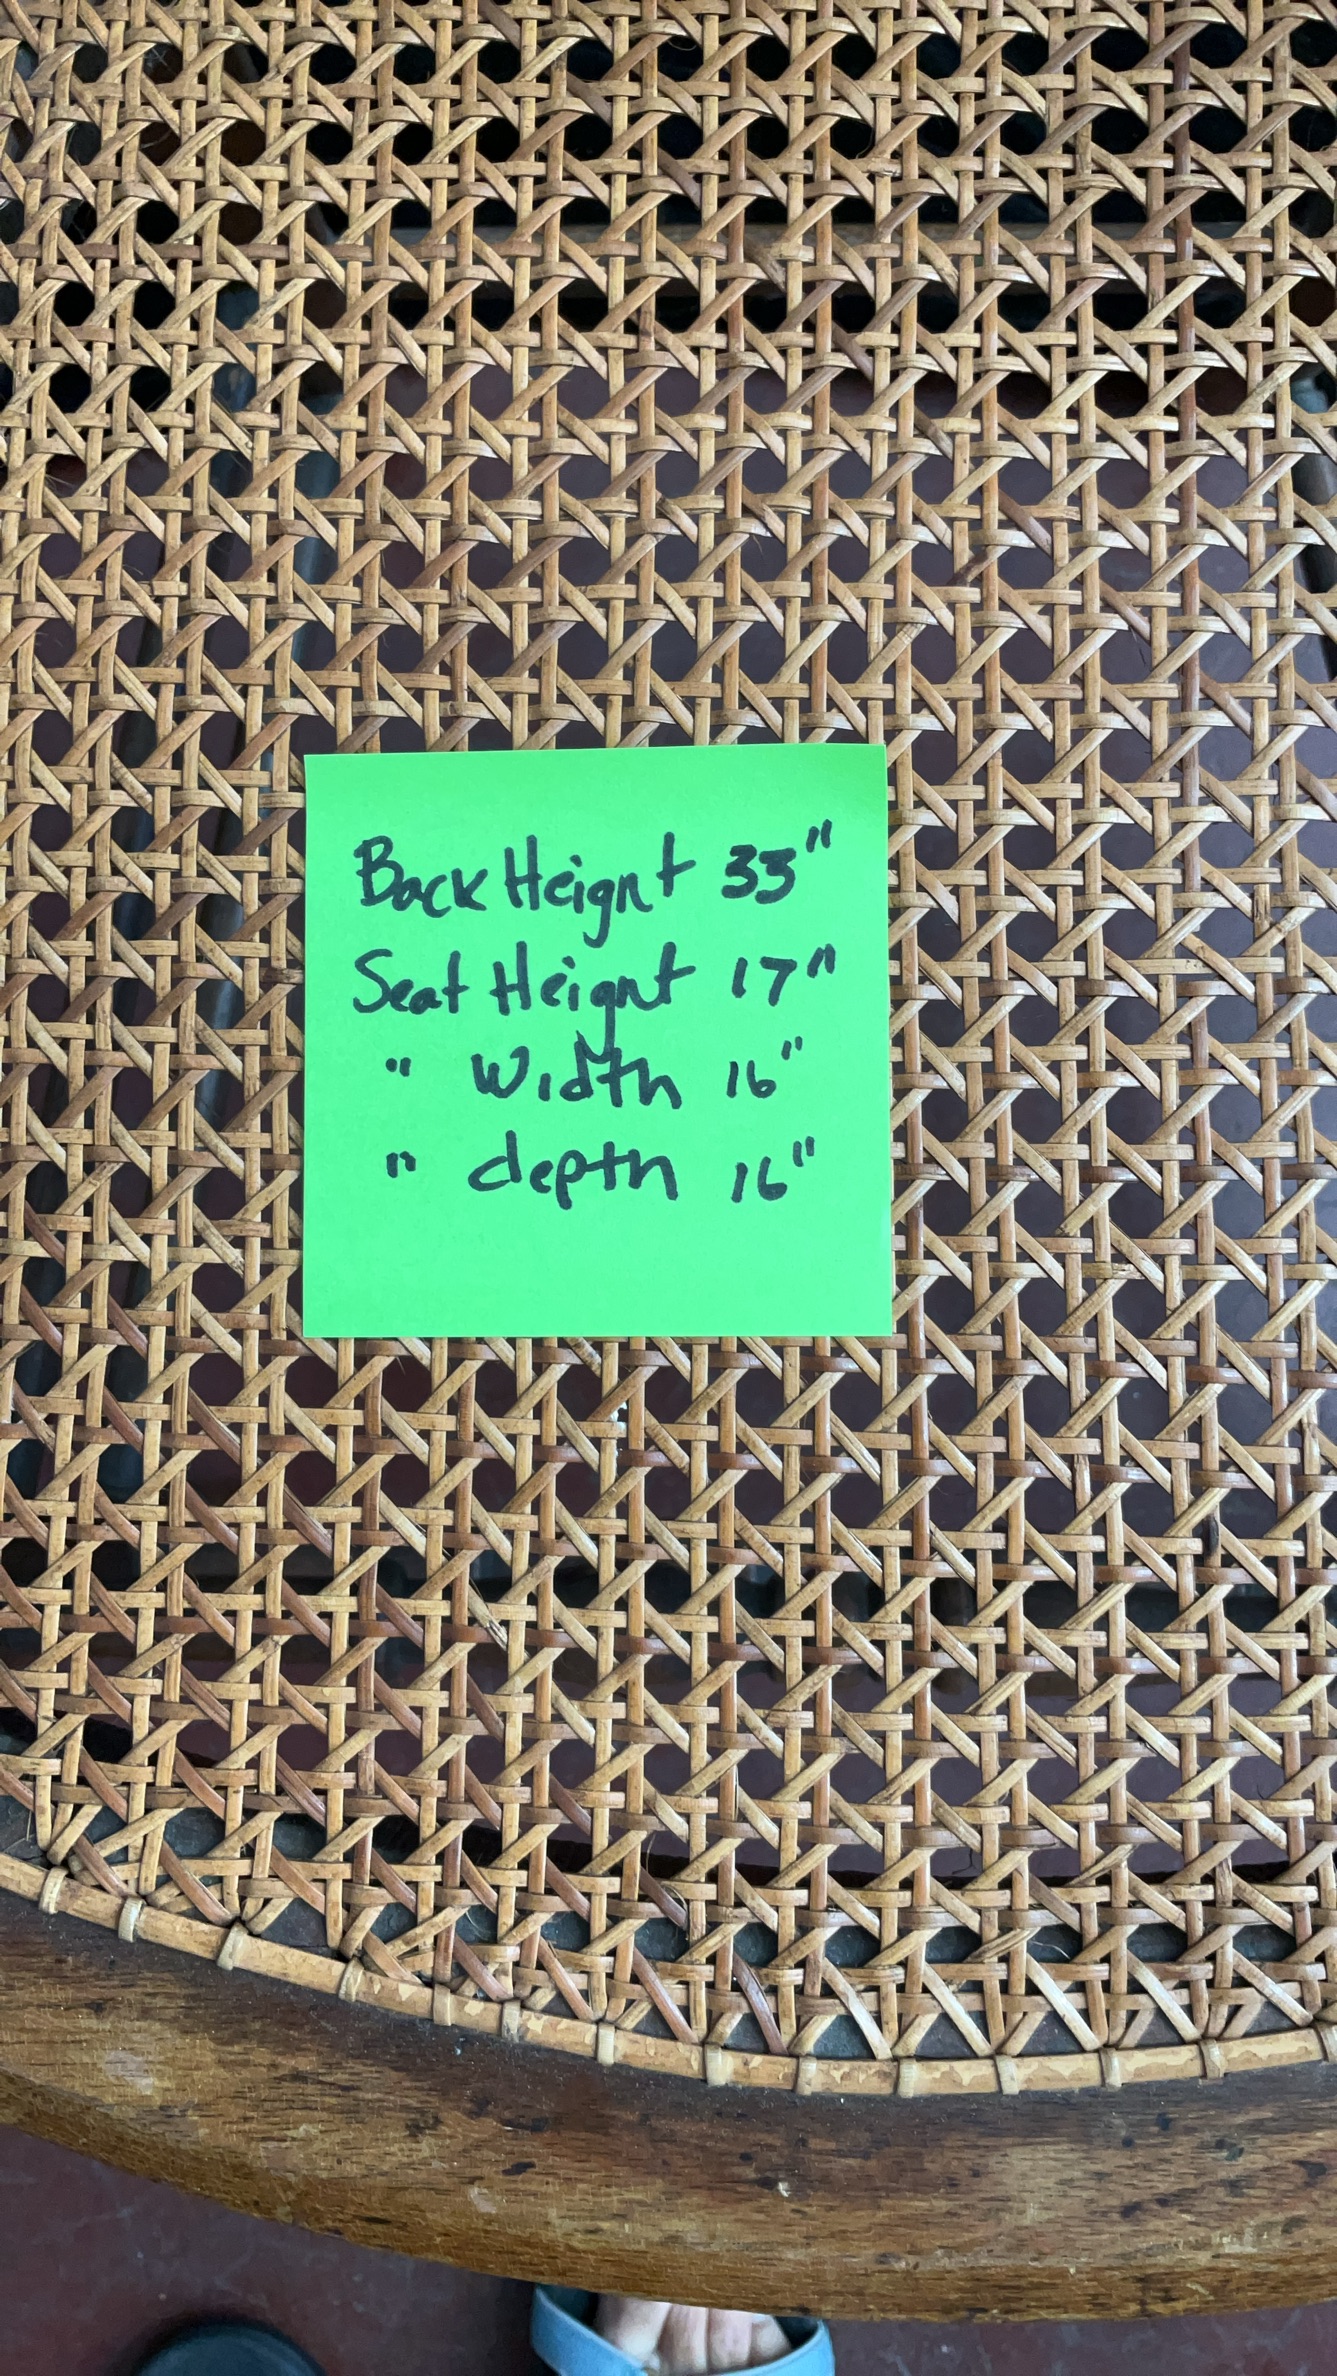 Back Height 33"
Seat Height 17"
" Width 16"
" depth 16"